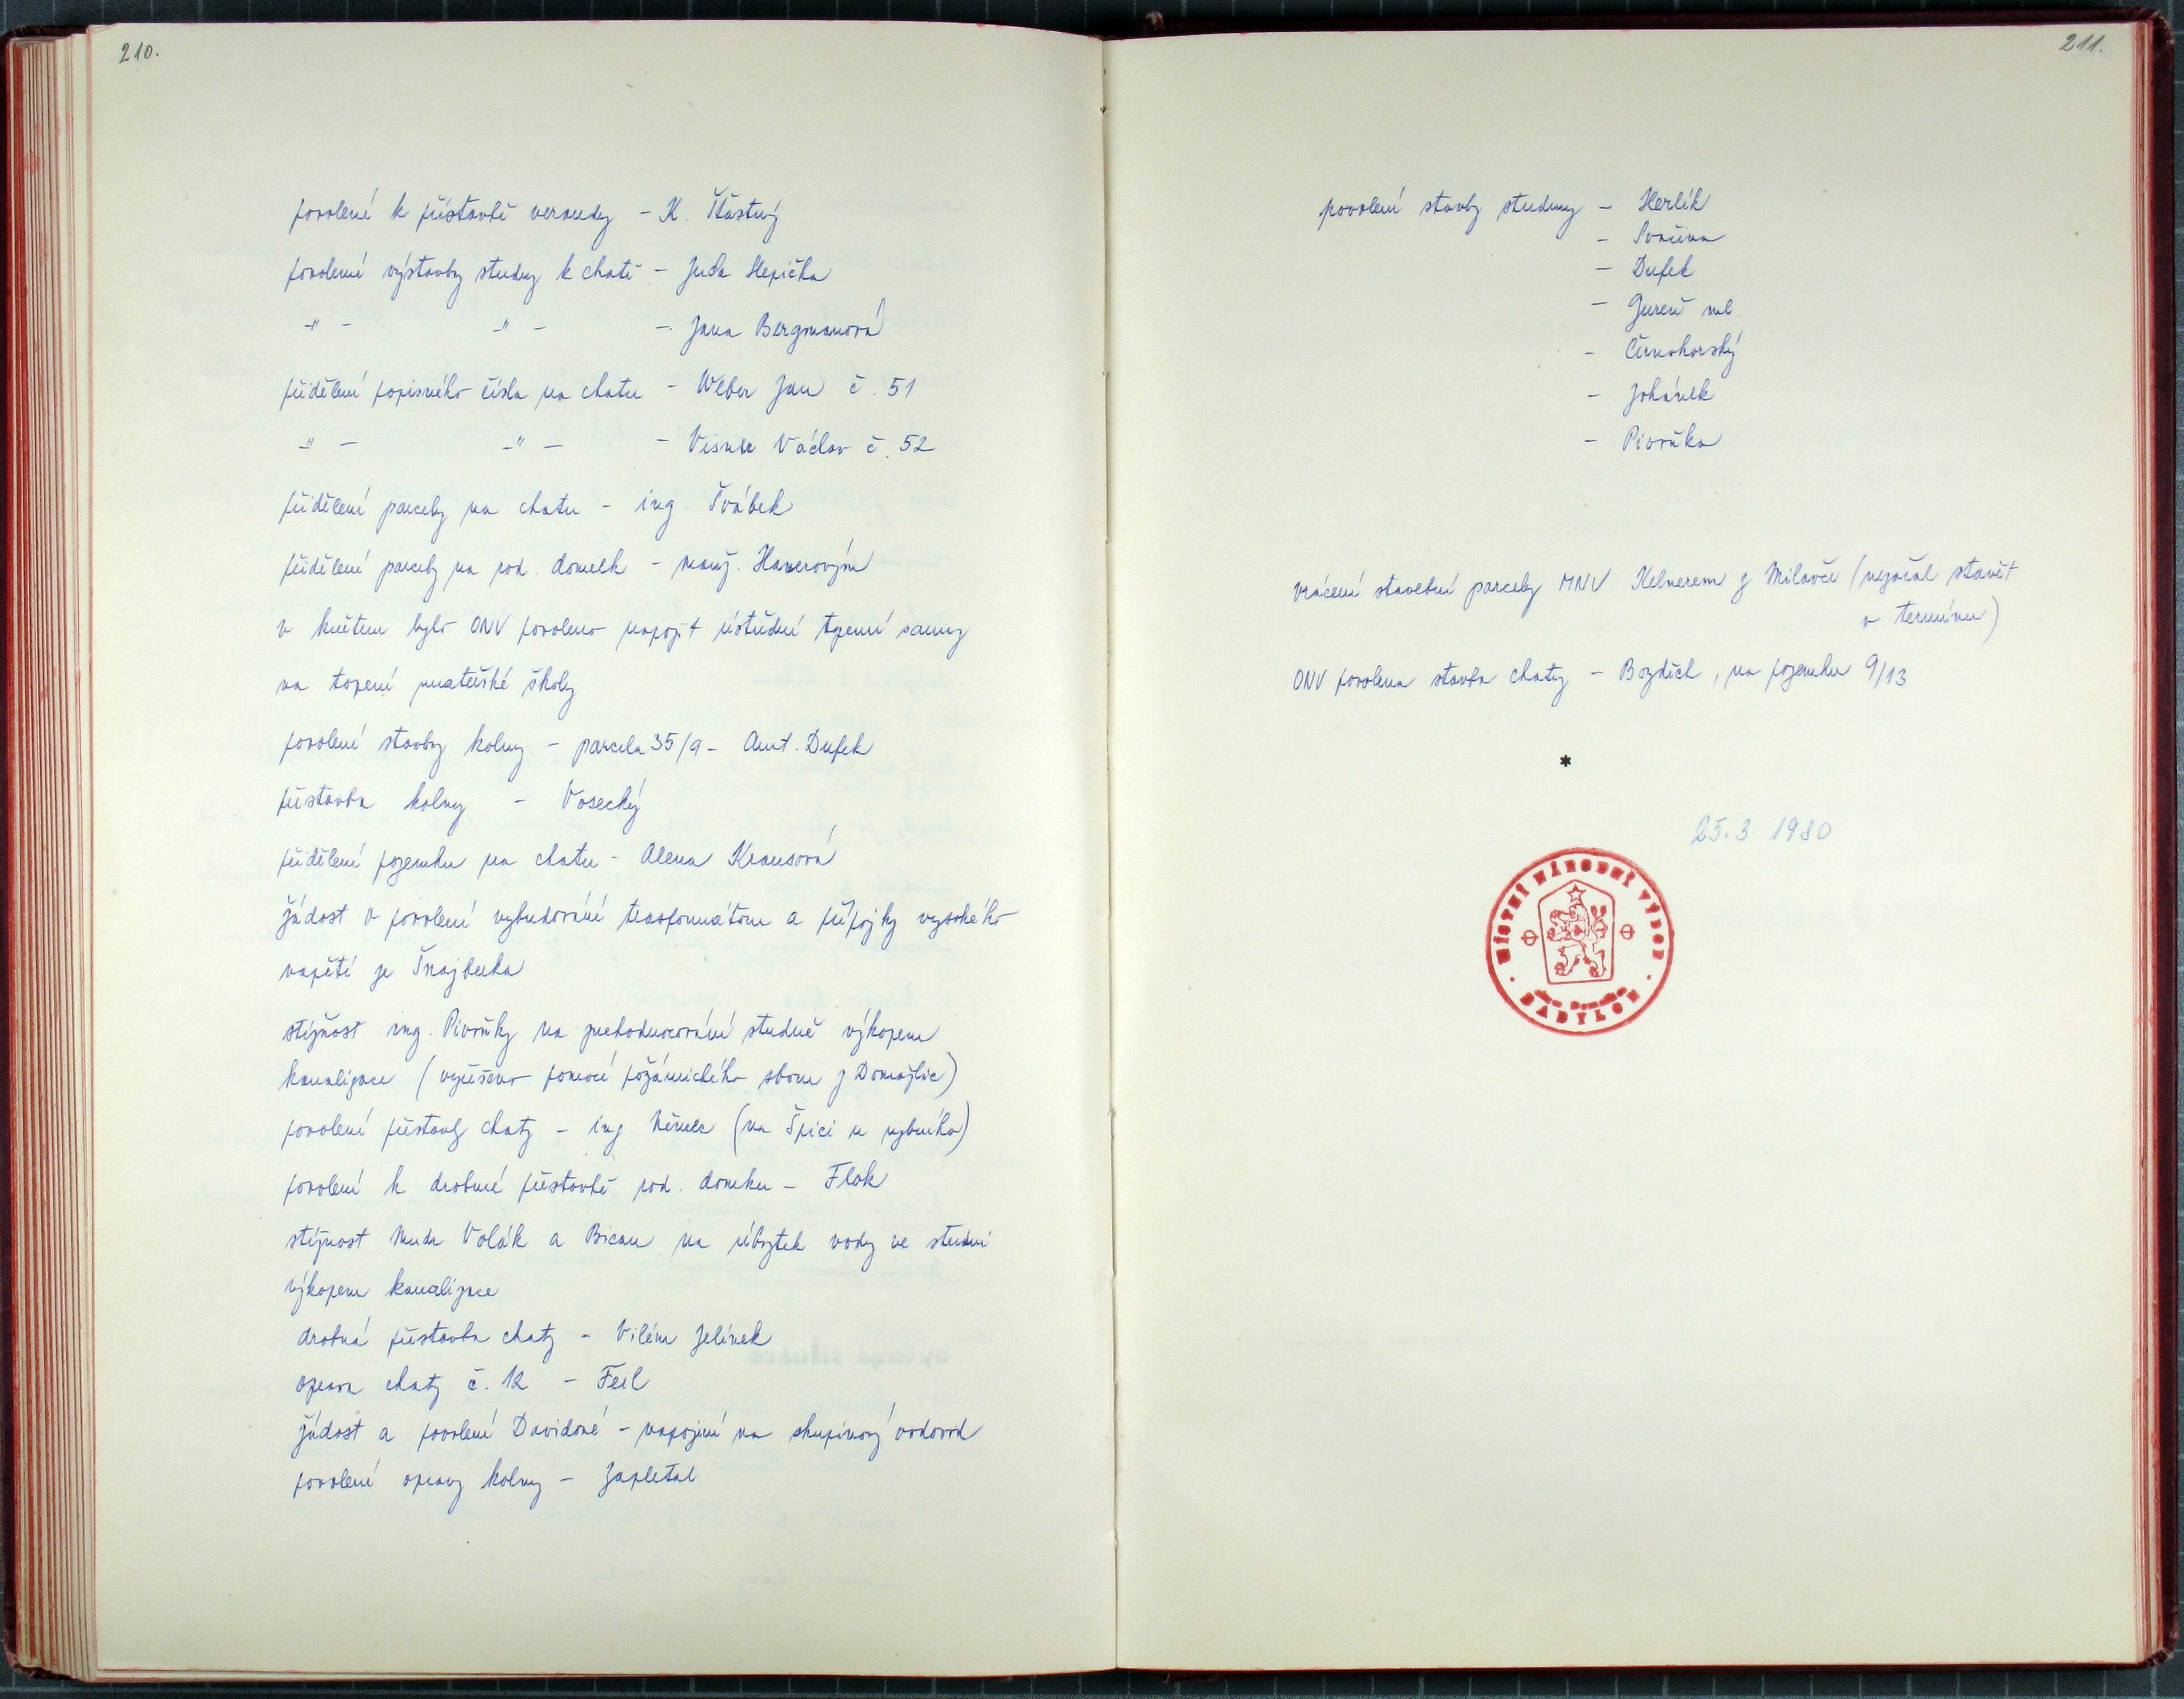 210.
povolení k přístavbě verandy - K. Šťastný
povolení výstavby studny k chatě - Juda Slepička
-"- -"- - Jana Bergmanová
přidělení popisného čísla na chatu - Weber Jan č. 51
-"- -"- - Visner Václav č. 52
přidělení parcely na chatu - ing. Švábek
přidělení parcely na rod. domek - manž. Hanerovým
v květnu bylo ONV povoleno napojit ústřední topení sauny
na topení mateřské školy
povolení stavby kolny - parcela 35/9 - Ant. Dufek
přístavba kolny - Vosecký
přidělení pozemku na chatu - Alena Krausová
žádost o povolení vybudování trasformátoru a přípojky vysokého
napětí ze Šnajberka
stížnost ing. Pivoňky na znehodnocování studně výkopem
kanalizace (vyřešeno pomocí požárnického sboru z Domažlic)
povolení přístavby chaty - ing. Němec (na Špici u rybníka)
povolení k drobné přístavbě rod. domku - Flak
stížnost Mudr Volák a Bican na úbytek vody ve studni
výkopem kanalizace
drobná přístavba chaty - Vilém Jelínek
oprava chaty č. 12 - Feil
žádost a povolení Davidové - napojení na skupinový vodovod
povolení opravy kolny - Zapletal
211.
povolení stavby studny - Herlík
- Svačina
- Dufek
- Gureň ml.
- Černohorský
- Johánek
- Pivoňka
vrácení stavební parcely MNV Kelnerem z Milavče (nezačal stavět
v termínu)
ONV povolena stavba chaty - Bozděch, na pozemku 9/13
*
25. 3. 1980
MÍSTNÍ NÁRODNÍ VÝBOR
BABYLON